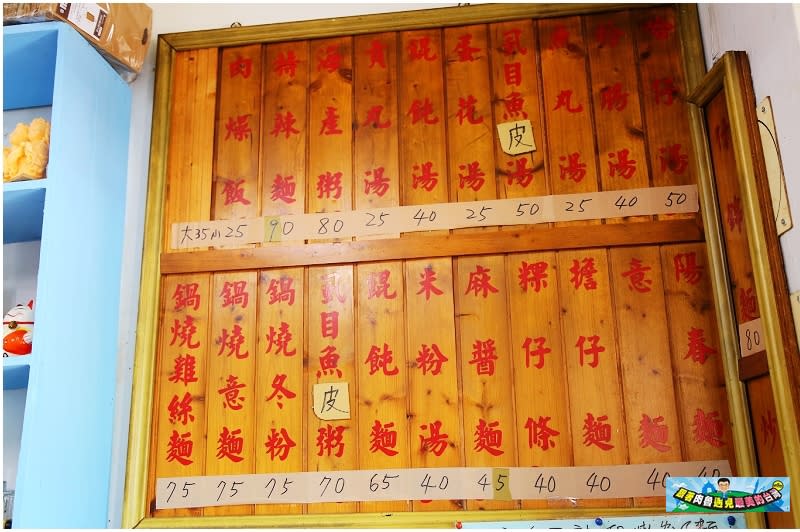 肉燥飯 大35小25
特辣麵 90
海產粥 80
貢丸湯 25
餛飩湯 40
蛋花湯 25
虱目魚皮湯 50
魚丸湯 25
湯 40
蚵仔湯 50
鍋燒雞絲麵 75
鍋燒意麵 75
鍋燒冬粉 75
虱目魚皮粥 70
餛飩麵 65
米粉湯 40
麻醬麵 45
粿仔條 40
擔仔麵 40
意麵 40
陽春麵 40
麵 80
炒
跟著肉魯遇見最美的台灣